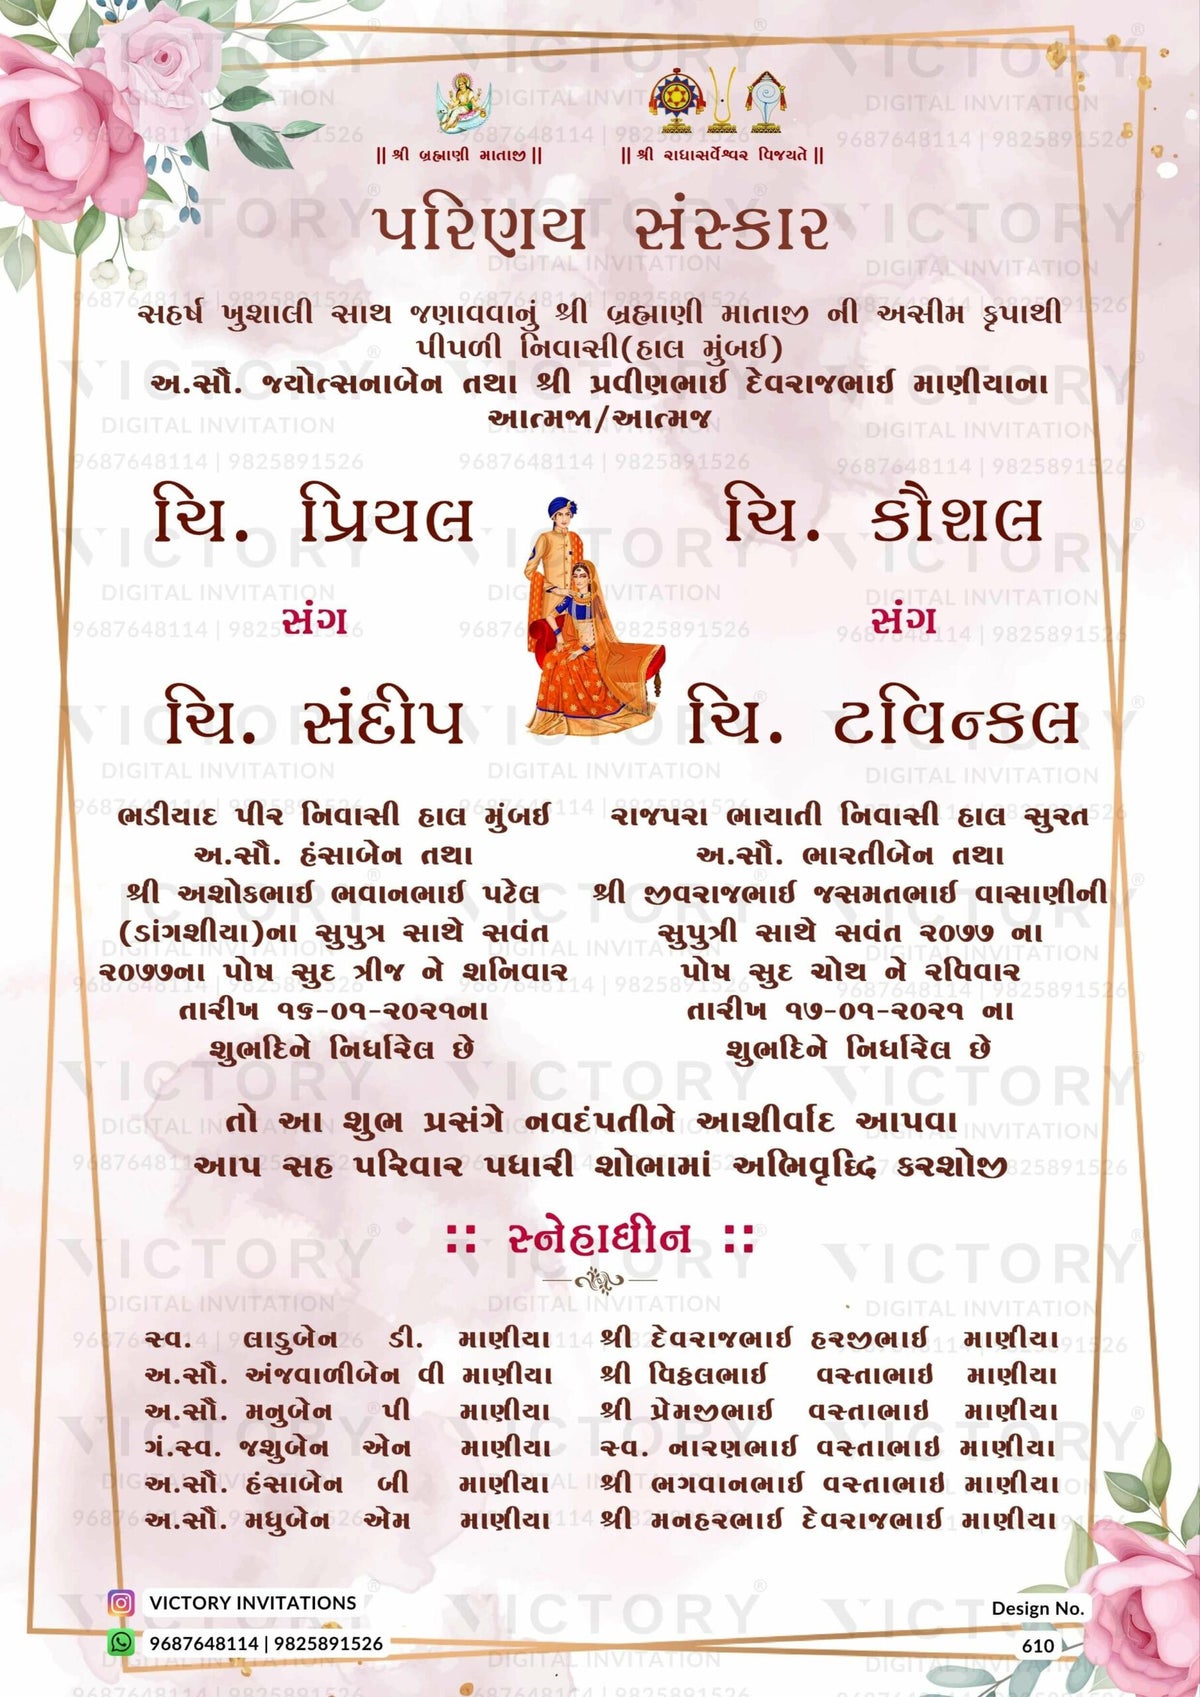 || શ્રી બ્રહ્માણી માતાજી ||
|| શ્રી રાધાસર્વેશ્વર વિજયતે ||
પરિણય સંસ્કાર
સહર્ષ ખુશાલી સાથ જણાવવાનું શ્રી બ્રહ્માણી માતાજી ની અસીમ કૃપાથી
પીપળી નિવાસી(હાલ મુંબઈ)
અ.સૌ. જયોત્સનાબેન તથા શ્રી પ્રવીણભાઈ દેવરાજભાઈ માણીયાના
આત્મજા/આત્મજ
ચિ. પ્રિયલ
સંગ
ચિ. સંદીપ
ભડીયાદ પીર નિવાસી હાલ મુંબઈ
અ.સૌ. હંસાબેન તથા
શ્રી અશોકભાઈ ભવાનભાઈ પટેલ
(ડાંગશીયા)ના સુપુત્ર સાથે સવંત
૨૦૭૭ના પોષ સુદ ત્રીજ ને શનિવાર
તારીખ ૧૬-૦૧-૨૦૨૧ના
શુભદિને નિર્ધારેલ છે
ચિ. કૌશલ
સંગ
ચિ. ટવિન્કલ
રાજપરા ભાયાતી નિવાસી હાલ સુરત
અ.સૌ. ભારતીબેન તથા
શ્રી જીવરાજભાઈ જસમતભાઈ વાસાણીની
સુપુત્રી સાથે સવંત ૨૦૭૭ ના
પોષ સુદ ચોથ ને રવિવાર
તારીખ ૧૭-૦૧-૨૦૨૧ ના
શુભદિને નિર્ધારેલ છે
તો આ શુભ પ્રસંગે નવદંપતીને આશીર્વાદ આપવા
આપ સહ પરિવાર પધારી શોભામાં અભિવૃધ્ધિ કરશોજી
:: સ્નેહાધીન ::
સ્વ. લાડુબેન ડી. માણીયા
અ.સૌ. અંજવાળીબેન વી માણીયા
અ.સૌ. મનુબેન પી માણીયા
ગં.સ્વ. જશુબેન એન માણીયા
અ.સૌ. હંસાબેન બી માણીયા
અ.સૌ. મધુબેન એમ માણીયા
શ્રી દેવરાજભાઈ હરજીભાઈ માણીયા
શ્રી વિઠ્ઠલભાઈ વસ્તાભાઇ માણીયા
શ્રી પ્રેમજીભાઈ વસ્તાભાઇ માણીયા
સ્વ. નારણભાઈ વસ્તાભાઇ માણીયા
શ્રી ભગવાનભાઈ વસ્તાભાઇ માણીયા
શ્રી મનહરભાઈ દેવરાજભાઈ માણીયા
VICTORY INVITATIONS
9687648114 | 9825891526
Design No.
610
VICTORY
DIGITAL INVITATION
9687648114 | 9825891526